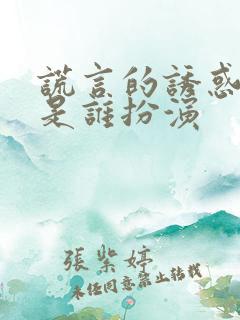 謊言的誘惑
是誰扮演
張紫婷
未經同意禁止轉載